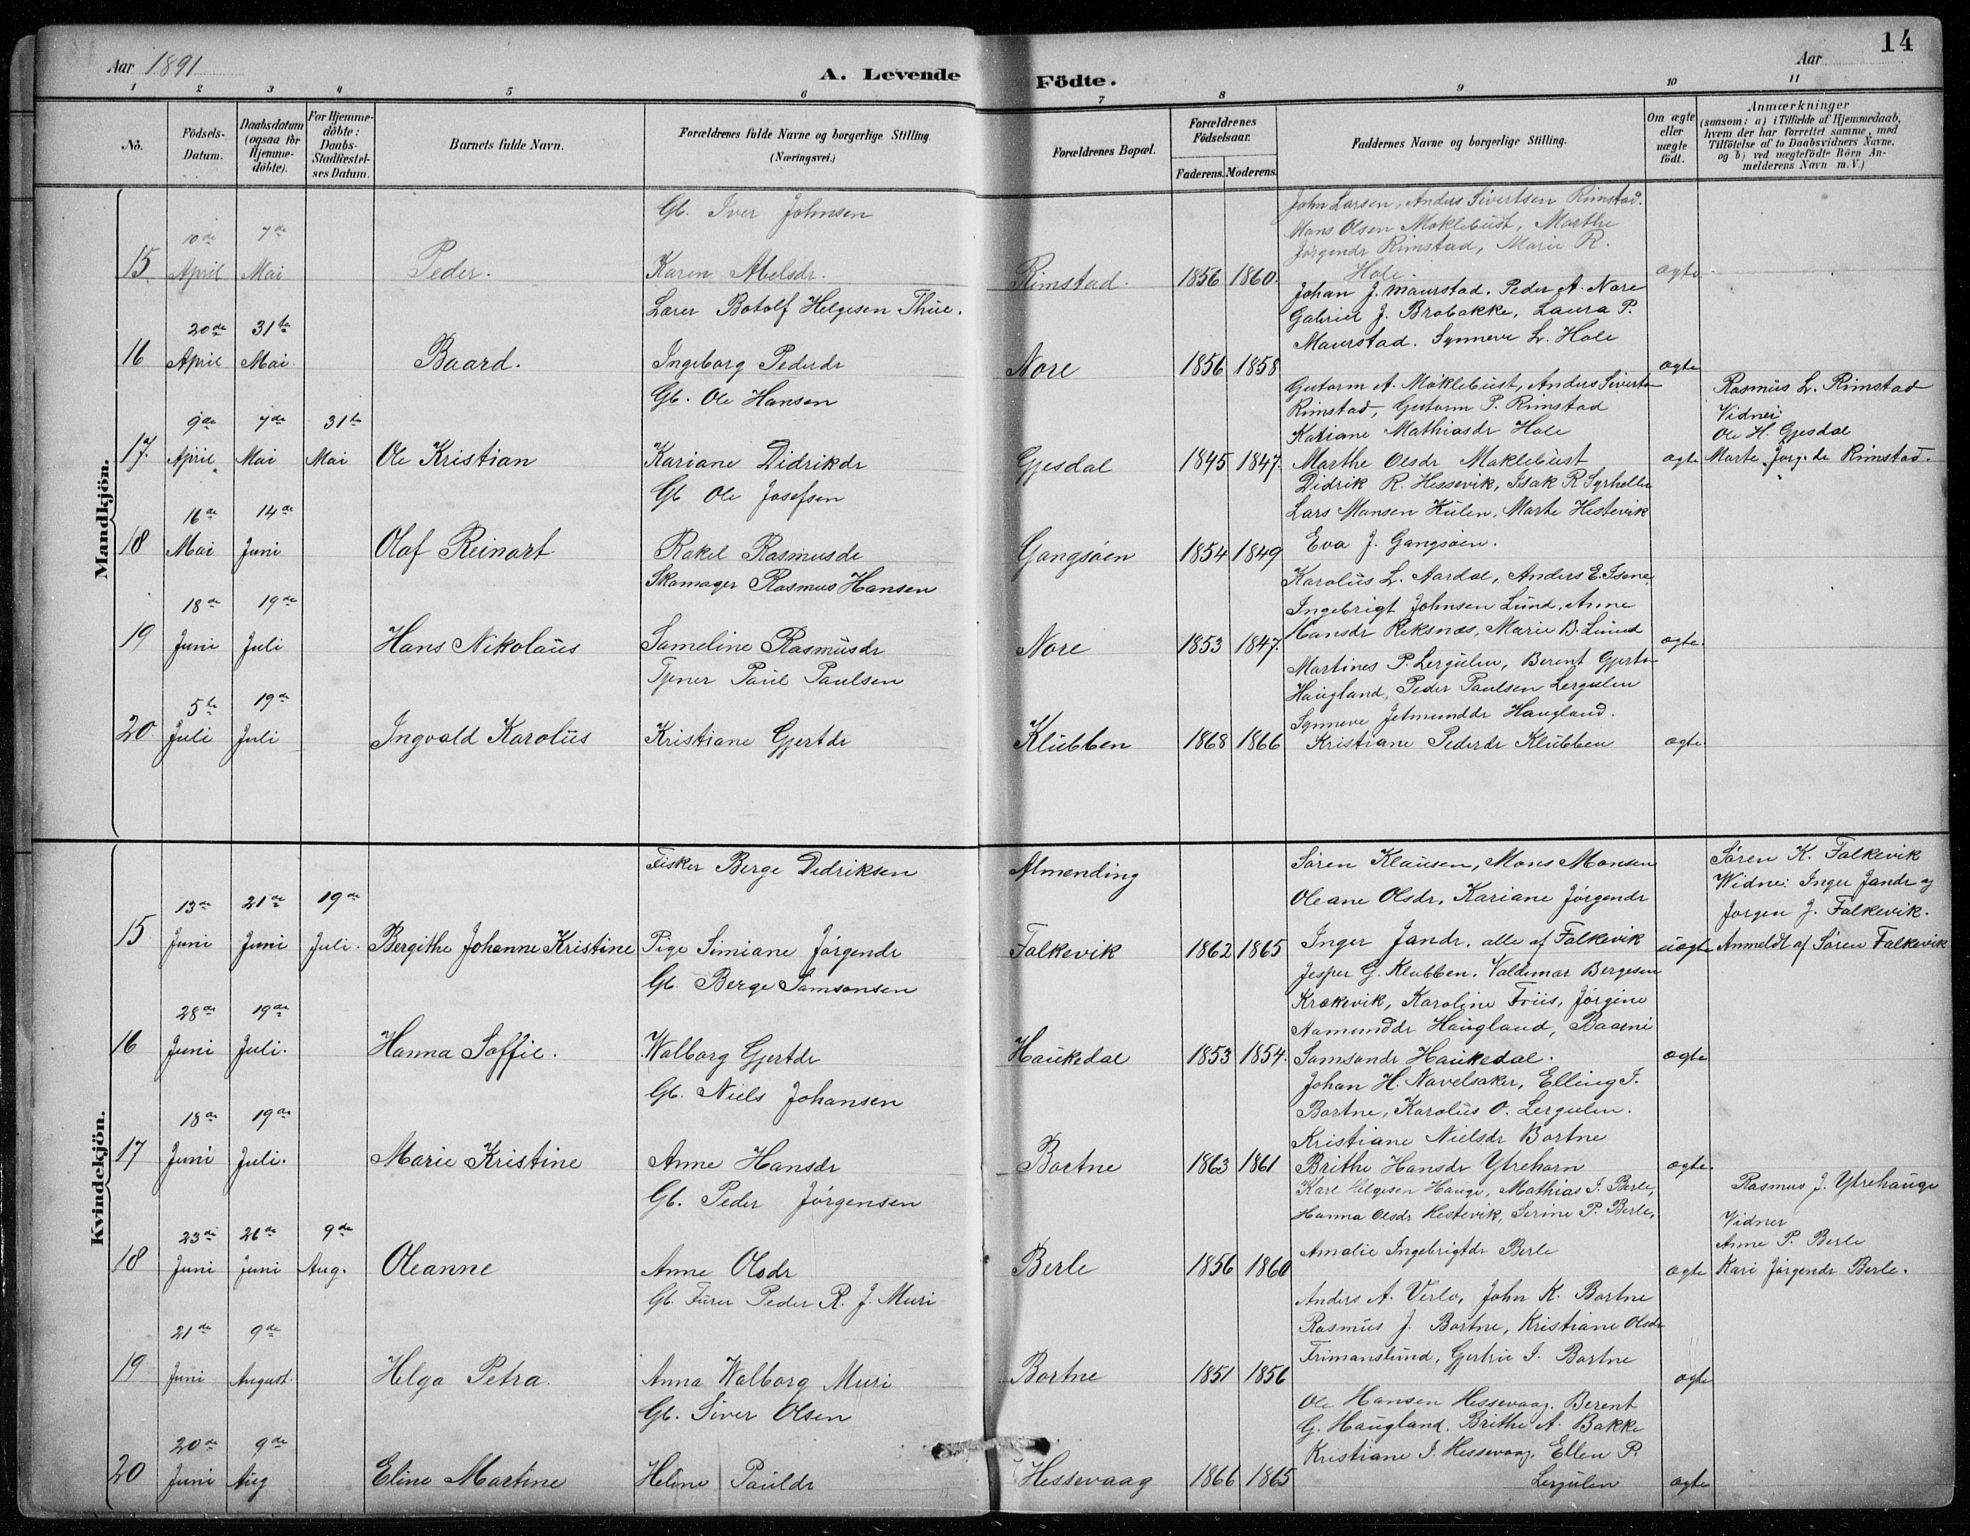 14
Aar 1891
A. Levende Födte.
Aar
1 2 3 4 5 6 7 8 9 10 11
No.
Födsels-Datum.
Daabsdatum (ogsaa för Hjemme-döbte).
For Hjemme-döbte: Daabs-Stadfæstel-ses Datum.
Barnets fulde Navn.
Forældrenes fulde Navne og borgerlige Stilling. (Næringsvei.)
Forældrenes Bopæl.
Forældrenes Födselsaar.
Faderens. Moderens.
Faddernes Navne og borgerlige Stilling.
Om ægte eller uægte födt.
Anmærkninger
(saasom: a) i Tilfælde af Hjemmedaab,
hvem der har forrettet samme, med
Tilföielse af to Daabsvidners Navne,
og b) ved uægtefödte Börn An-
melderens Navn m. V.)
Mandkjön.
Gb. Iver Johnsen
John Larsen, Anders Sivertsen Rimstad.
Hans Olsen Maklebust, Marthe
10de 7de
Jørgendr Rimstad, Marie R.
Hole.
15 April Mai Peder. Karen Abelsdr. Rimstad. 1856 1860. ægte
Lærer Botolf Helgesen Thue.
Johan J. Maurstad. Peder A. Nore
Gabriel J. Brobakke, Laura P.
20de 31te
Maurstad. Synneve L. Hole
16 April Mai. Baard. Ingeborg Pederdr Nore 1856 1858 ægte
Gb. Ole Hansen
Guttorm A. Maklebust, Anders Siverts
Rimstad, Guttorm P. Rimstad
Kariane Mathiasdr Hole
Rasmus L. Rimstad
Vidner
Ole H. Gjesdal
9de 7de 31te
17. April Mai Mai Ole Kristian Kariane Didrikdr Gjesdal 1845 1847. Marthe Olsdr Maklebust ægte Marte Jørg.dr Rimstad.
Gb Ole Josefsen
Didrik R. Hessevik, Isak R Syrhella
Lars Monsen Hulen. Marte Hestevik
16de 14de
18 Mai Juni Olaf Reinart Rakel Rasmusdr Gangsøen 1854 1849 Eva J. Gangsøen.
Skomager Rasmus Hansen
Karolus L. Aardal, Anders E. Isene,
Ingebrigt Johnsen Lund, Anne
18de 19de
Hansdr Reksnæs, Marie B. Lund
19 Juni Juli Hans Nikolaus Sameline Rasmusdr Nore 1853 1847. ægte.
Tjener Paul Paulsen
Martines P. Lergulen, Berent Gjerts
Haugland, Peder Paulsen Lergulen
5te 19de
Synneve Jetmunddr Haugland.
20 Juli Juli Ingvald Karolus Kristiane Gjertdr Klubben 1868 1866 Kristiane Pederdr Klubben ægte
Kvindekjön.
Fisker Berge Didriksen Almending
Søren Klausen, Mons Monsen
Oleane Olsdr, Kariane Jørgendr
Søren K. Falkevik
Widne: Inger Jandr og
Jørgen J. Falkevik.
13de 21de 19de
15 Juni Juni Juli. Bergithe Johanne Kristine Pige Simiane Jørgendr Falkevik 1862 1865 Inger Jandr. alle af Falkevik uægte Anmeldt af Søren Falkevik
Gb. Berge Samsonsen
Jesper G. Klubben. Valdemar Bergesen
Krakevik, Karoline Friis, Jørgine
28de 19de
Aamunddr Haugland, Baarni
16 Juni Juli. Hanna Soffie. Walborg Gjertdr Haukedal 1853 1854. Samsondr Haukedal. ægte
Gb. Niels Johansen
Johan H. Navelsaker, Elling I.
Bortne, Karolus O. Lergulen.
18de 19de
Kristiane Nielsdr Bortne
17 Juni Juli. Marie Kristine Anne Hansdr Bortne 1863 1861 Brithe Hansdr Ytrehorn ægte
Gb. Peder Jørgensen
Karl Helgesen Hauge, Mathias I. Berle,
Hanna Olsdr Hestevik, Serine P. Berle,
Rasmus J. Ytrehauge
Vidner
Anne P. Berle
23de 26de 9de
18 Juni Juni Aug. Oleanne Anne Olsdr Berle 1856 1860 Amalie Ingebrigtdr Berle ægte Kari Jørgendr Berle.
Gb. Furer Peder R. J. Muri
Anders A. Verlo, John K. Bortne
Rasmus J. Bortne, Kristiane Olsdr
21de 9de
Frimanslund, Gjertrui I. Bortne
19 Juni August. Helga Petra. Anna Walborg Muri Bortne 1851 1856 ægte
Gb. Siver Olsen
Ole Hansen Hessevaag. Berent
G. Haugland. Brithe A. Bakke
20de 9de
Kristiane I. Hessevaag, Ellen P.
20 Juni Aug Eline Martine Heline Pauldr Hessevaag 1866 1865 Lergulen ægte